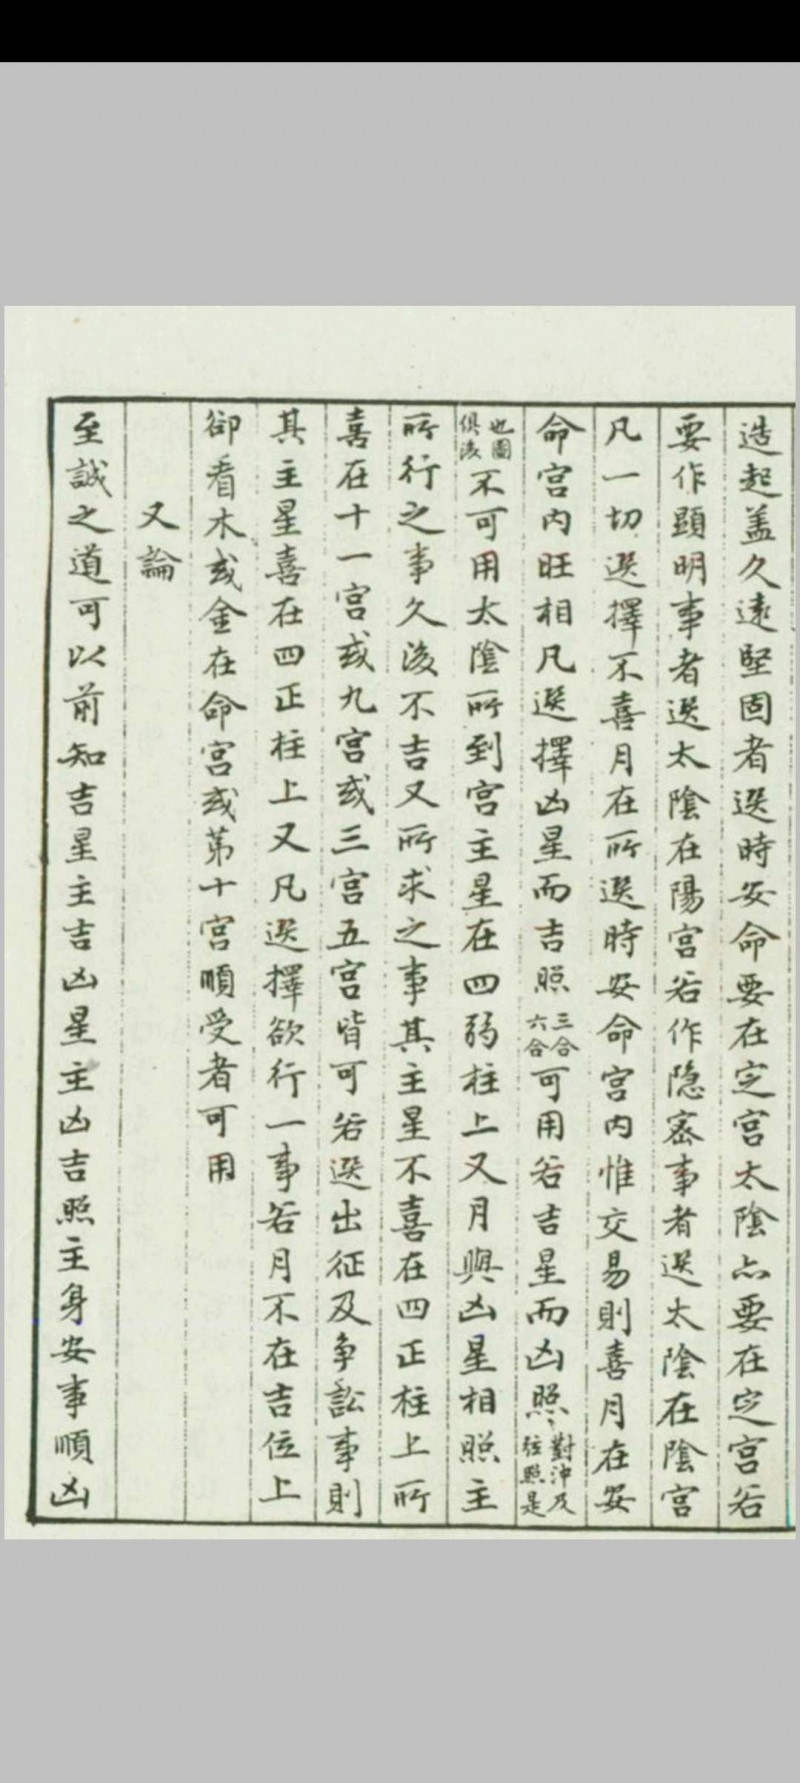 造起盖久遠堅固者选時安命要在定宫太陰亦要在定宫若
要作顕明事者选太陰在陽宫若作隐宻事者选太陰在陰宫
凡一切选擇不喜月在所选時安命宫内惟交易則喜月在安
命宫内旺相凡选擇凶星而吉照三合六合可用若吉星而凶照對沖及弦照是
也圖俱後不可用太陰所到宫主星在四弱柱上又月與凶星相照主
所行之事久後不吉又所求之事其主星不喜在四正柱上所
喜在十一宫或九宫或三宫五宫皆可若选出征及争訟事則
其主星喜在四正柱上又凡选擇欲行一事若月不在吉位上
卻看木或金在命宫或第十宫順受者可用
又論
至誠之道可以前知吉星主吉凶星主凶吉照主身安事順凶